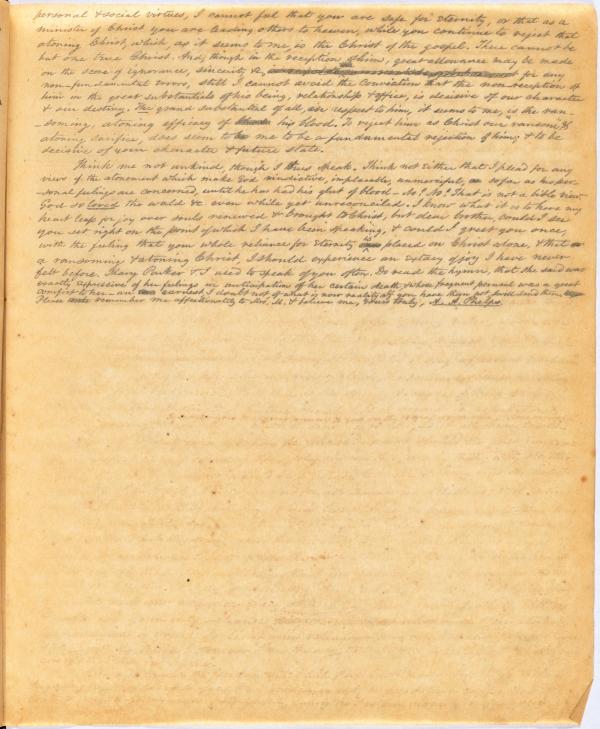 personal & social virtues, I cannot feel that you are safe for eternity, or that as a
minister of Christ you are leading others to heaven, while you continue to reject that
atoning Christ, which, as it seems to me, is the Christ of the gospel. There cannot be
but one true Christ. And, though in the reception of him, great allowance may be made
on the score of ignorance, sincerity &c, for any
non-fundamental errors, still I cannot avoid the conviction that the non-reception of
him in the great substantials of his being, relationships & office, is decisive of our character
& our destiny. The grand substantial of all, in respect to him, it seems to me, is the ran-
-soming, atoning efficacy of his blood. To reject him as Christ our "ransom" &
atoning sacrifice, does seem to me to be a fundamental rejection of him; & to be
decisive of your character & future state.
Think me not unkind, though I thus speak. Think not either that I plead for any
views of the atonement which make God vindictive, implacable, unmerciful, so far as his per-
-sonal feelings are concerned, until he has had his glut of blood - No! No! That is not a bible view
God so loved the world &c even while yet unreconciled. I know what it is to have my
heart leap for joy over souls renewed & brought to Christ, but dear brother, could I see
you set right on the point of which I have been speaking, & could I greet you once,
with the feeling that you whole reliance for eternity is placed on Christ alone, & that
a ransoming & atoning Christ, I should experience an extacy of joy I have never
felt before. Mary Parker & I used to speak of you often. Do read the hymn, that she said was
exactly expressive of her feelings in anticipation of her certain death, & whose frequent perusal was a great
comfort to her - an earnest I doubt not of what is now reality. If you have them not I will send them,
Please remember me affectionately to Mrs. M. & believe me, Yours truly, A. A. Phelps.